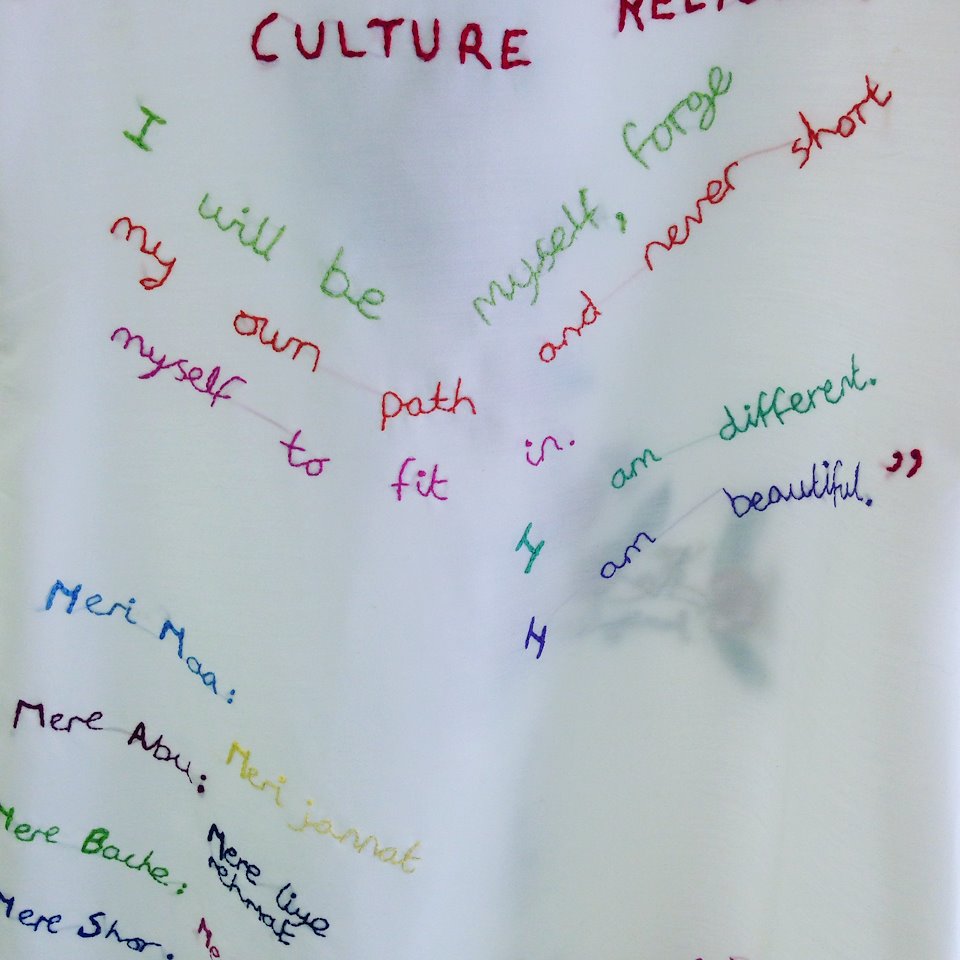 CULTURE
I will be myself, forge
my own path and never short
myself to fit in. I am different.
I am beautiful.”
Meri Maa: Meri jannat
Mere Abu: Mere liye rehmat
Mere Bache: Me
Mere Shor.